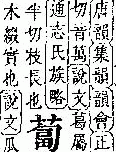 唐韻集韻韻會正
切音萬說文葛屬
通志氏族略
半切枝長也
蔔
木綴實也說文瓜